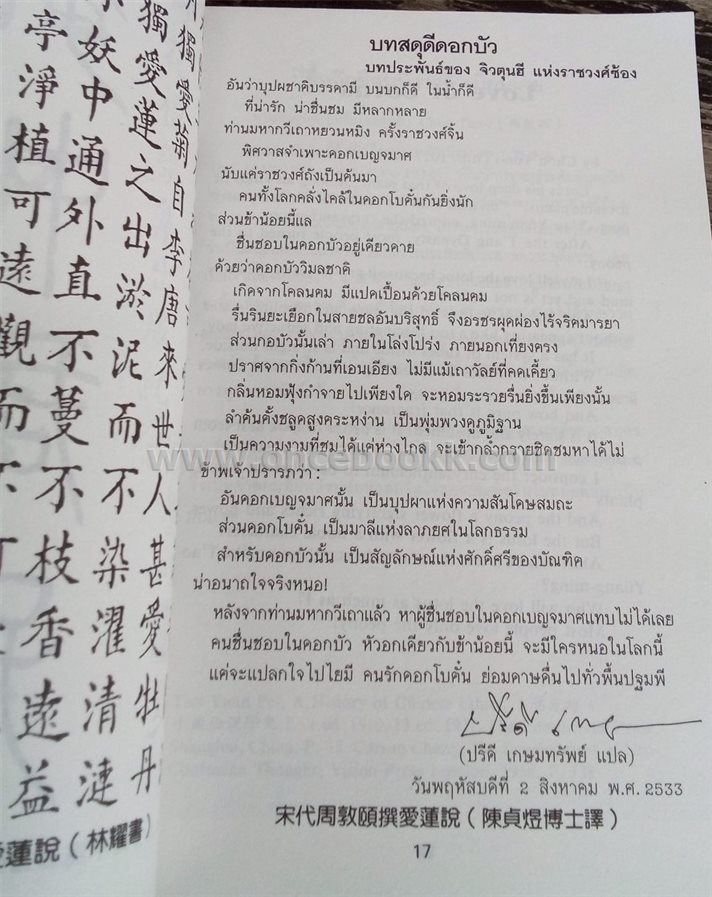 บทสดุดีดอกบัว
บทประพันธ์ของ จิวตุนฮี แห่งราชวงศ์ซ้อง
อันว่าบุปผชาติบรรดามี บนบกก็ดี ในน้ำก็ดี
ที่น่ารัก น่าชื่นชม มีหลากหลาย
ท่านมหากวีเถาหยวนหมิง ครั้งราชวงศ์จิ้น
พิศวาสจำเพาะดอกเบญจมาศ
นับแค่ราชวงศ์ถังเป็นต้นมา
คนทั้งโลกคลั่งไคล้ในดอกโบตั๋นกันยิ่งนัก
ส่วนข้าน้อยนี้แล
ชื่นชอบในดอกบัวอยู่เดียวดาย
ด้วยว่าดอกบัววิมลชาติ
เกิดจากโคลนตม มีแปดเปื้อนด้วยโคลนตม
รื่นรินยะเยือกในสายชลอันบริสุทธิ์ จึงอรชรผุดผ่องไร้จริตมารยา
ส่วนกอบัวนั้นเล่า ภายในโล่งโปร่ง ภายนอกเที่ยงตรง
ปราศจากกิ่งก้านที่เอนเอียง ไม่มีแม้เถาวัลย์ที่คดเคี้ยว
กลิ่นหอมฟุ้งกำจายไปเพียงใด จะหอมระรวยรื่นยิ่งขึ้นเพียงนั้น
ลำต้นตั้งชลูดสูงตระหง่าน เป็นพุ่มพวงดูภูมิฐาน
เป็นความงามที่ชมได้แต่ห่างไกล จะเข้ากล้ำกรายชิดชมหาได้ไม่
ข้าพเจ้าปรารภว่า :
อันดอกเบญจมาศนั้น เป็นบุปผาแห่งความสันโดษสมถะ
ส่วนดอกโบตั๋น เป็นมาลีแห่งลาภยศในโลกธรรม
สำหรับดอกบัวนั้น เป็นสัญลักษณ์แห่งศักดิ์ศรีของบัณฑิต
น่าอนาถใจจริงหนอ!
หลังจากท่านมหากวีเถาแล้ว หาผู้ชื่นชอบในดอกเบญจมาศแทบไม่ได้เลย
คนชื่นชอบในดอกบัว หัวอกเดียวกับข้าน้อยนี้ จะมีใครหนอในโลกนี้
แต่จะแปลกใจไปไยมี คนรักดอกโบตั๋น ย่อมดาษดื่นไปทั่วพื้นปฐมพี
(ปรีดี เกษมทรัพย์ แปล)
วันพฤหัสบดีที่ 2 สิงหาคม พ.ศ. 2533
宋代周敦頤撰愛蓮說（陳貞煜博士譯）
17
自李唐來世人甚愛牡丹
獨愛蓮之出淤泥而不染濯清漣
不妖中通外直不蔓不枝香遠益
亭淨植可遠觀而不
愛蓮說（林耀書）
www.oncebookk.com